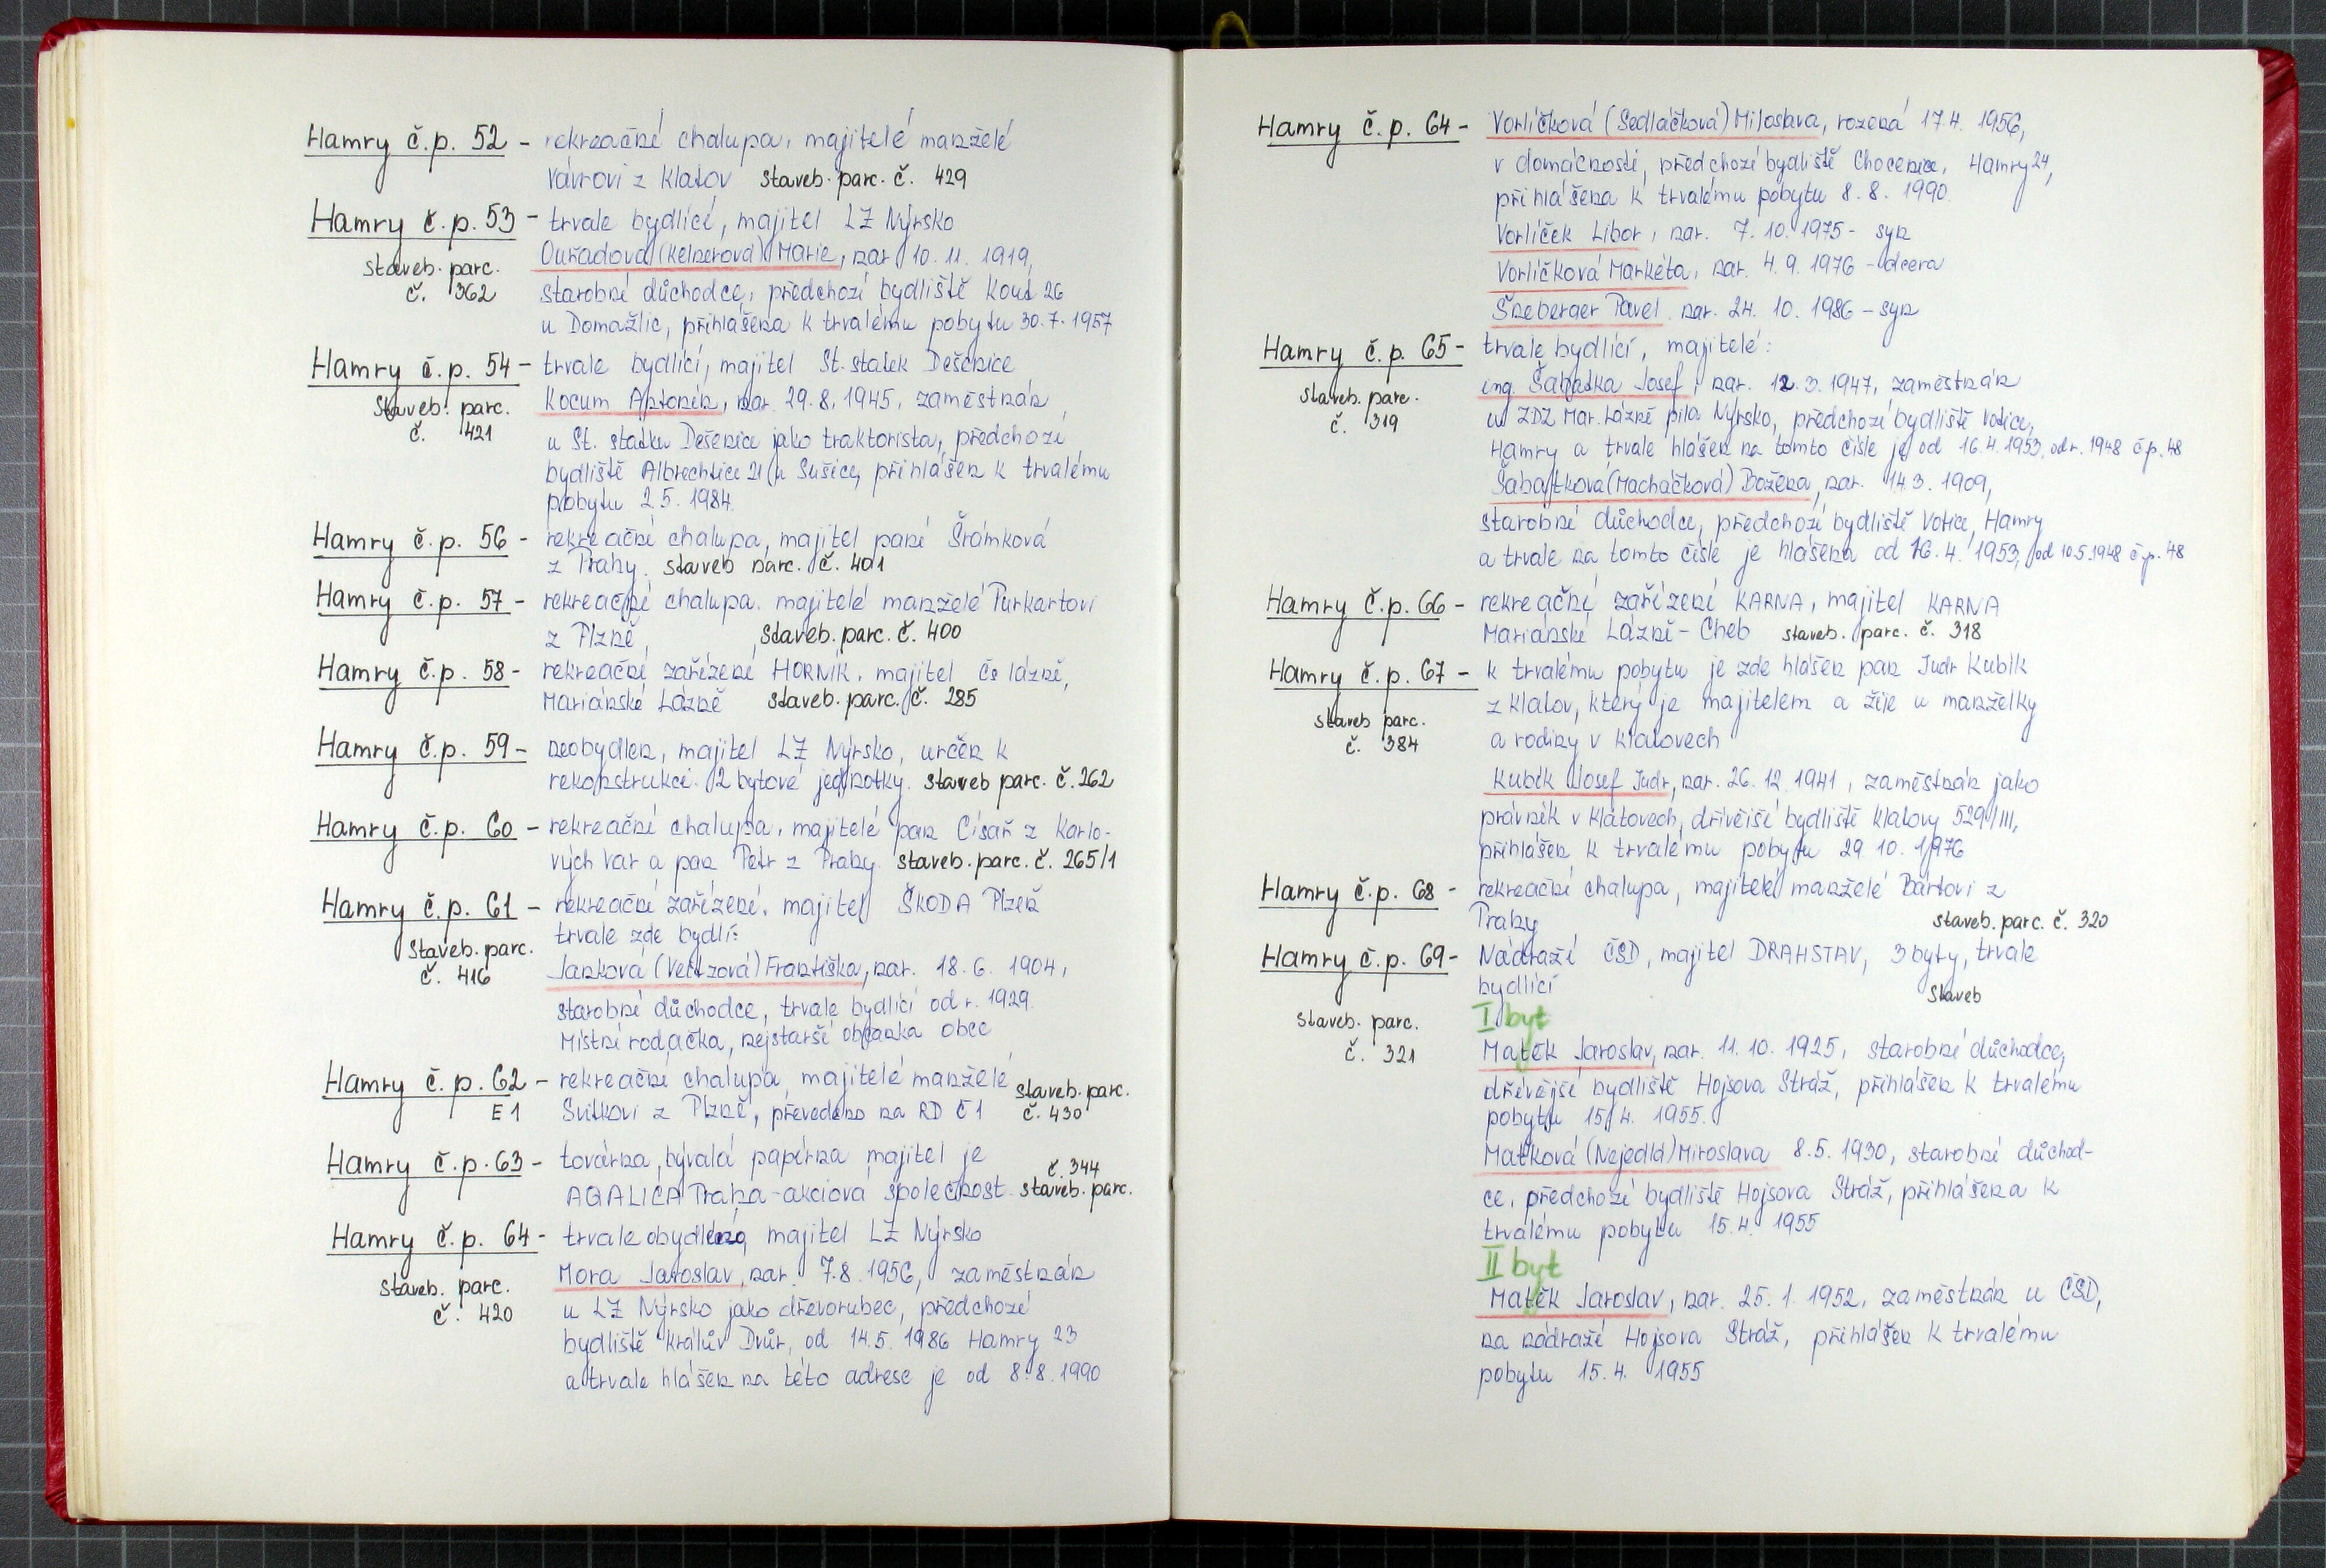 Hamry č.p. 52 - rekreační chalupa, majitelé manželé
Vávrovi z Klatov staveb. parc. č. 429
Hamry č.p. 53 - trvale bydlící, majitel LZ Nýrsko
Ouřadová (Kelnerová) Marie, nar. 10. 11. 1919,
staveb. parc.
č. 362
starobní důchodce, předchozí bydliště Kout 26
u Domažlic, přihlášena k trvalému pobytu 30.7.1957
Hamry č.p. 54 - trvale bydlící, majitel St. statek Dešenice
staveb. parc.
č. 421
Kocum Antonín, nar. 29.8.1945, zaměstnán
u St. statku Dešenice jako traktorista, předchozí
bydliště Albrechtice 21 u Sušice, přihlášen k trvalému
pobytu 2.5. 1984.
Hamry č.p. 56 - rekreační chalupa, majitel paní Šrámková
z Prahy. staveb parc. č. 401
Hamry č.p. 57 - rekreační chalupa, majitelé manželé Purkartovi
z Plzně, staveb. parc. č. 400
Hamry č.p. 58 - rekreační zařízení HORNÍK, majitel čs lázně,
Mariánské Lázně staveb. parc. č. 285
Hamry č.p. 59 - neobydlen, majitel LZ Nýrsko, určen k
rekonstrukci. 2 bytové jednotky. staveb parc. č. 262
Hamry č.p. 60 - rekreační chalupa, majitelé pan Císař z Karlo-
vých Var a pan Petr z Prahy. staveb. parc. č. 265/1
Hamry č.p. 61 - rekreační zařízení, majitel ŠKODA Plzeň
trvale zde bydlí:
staveb. parc.
č. 416
Janková (Veitzová) Františka, nar. 18. 6. 1904,
starobní důchodce, trvale bydlící od r. 1929.
Místní rodačka, nejstarší občanka obce
Hamry č.p. 62 - rekreační chalupa, majitelé manželé staveb. parc.
E 1 Svitkovi z Plzně, převedeno na RD č 1 č. 430
Hamry č.p. 63 - továrna, bývalá papírna majitel je č. 344
AQALICA Praha - akciová společnost. staveb. parc.
Hamry č.p. 64 - trvale obydleno, majitel LZ Nýrsko
staveb. parc.
č. 420
Mora Jaroslav, nar. 7.8. 1956, zaměstnán
u LZ Nýrsko jako dřevorubec, předchozí
bydliště Králův Dvůr, od 14.5. 1986 Hamry 23
a trvale hlášen na této adrese je od 8.8.1990
Hamry č.p. 64 - Vorlíčková (Sedláčková) Miloslava, rozená 17.4. 1956,
v domácnosti, předchozí bydliště Chocenice, Hamry 24,
přihlášena k trvalému pobytu 8. 8. 1990.
Vorlíček Libor, nar. 7. 10. 1975 - syn
Vorlíčková Markéta, nar. 4. 9. 1976 - dcera
Šneberger Pavel nar. 24. 10. 1986 - syn
Hamry č.p. 65 - trvale bydlící, majitelé:
staveb. parc.
č. 319
ing. Šabatka Josef, nar. 12.3.1947, zaměstnán
u ZDZ Mar. Lázně pila Nýrsko, předchozí bydliště Votice,
Hamry a trvale hlášen na tomto čísle je od 16.4.1953, od r. 1948 č.p. 48
Šabatková (Macháčková) Božena, nar. 14.3. 1909,
starobní důchodce, předchozí bydliště Votice, Hamry
a trvale na tomto čísle je hlášena od 16.4. 1953, od 10.5.1948 č.p. 48
Hamry č.p. 66 - rekreační zařízení KARNA, majitel KARNA
Mariánské Lázně - Cheb staveb. parc. č. 318
Hamry č.p. 67 - k trvalému pobytu je zde hlášen pan Judr Kubík
staveb parc.
č. 384
z Klatov, který je majitelem a žije u manželky
a rodiny v Klatovech
Kubík Josef Judr, nar. 26. 12. 1941, zaměstnán jako
právník v Klatovech, dřívější bydliště Klatovy 529/III,
přihlášen k trvalému pobytu 29. 10. 1976
Hamry č.p. 68 - rekreační chalupa, majitelé manželé Bártovi z
Prahy staveb. parc. č. 320
Hamry č.p. 69 - Nádraží ČSD, majitel DRAHSTAV, 3 byty, trvale
bydlící staveb
staveb. parc.
č. 321
I byt
Matěk Jaroslav, nar. 11. 10. 1925, starobní důchodce,
dřívější bydliště Hojsova Stráž, přihlášen k trvalému
pobytu 15.4. 1955.
Matková (Nejedlá) Miroslava 8.5. 1930, starobní důchod-
ce, předchozí bydliště Hojsova Stráž, přihlášena k
trvalému pobytu 15.4. 1955
II byt
Matěk Jaroslav, nar. 25. 1. 1952, zaměstnán u ČSD,
na nádraží Hojsova Stráž, přihlášen k trvalému
pobytu 15.4. 1955